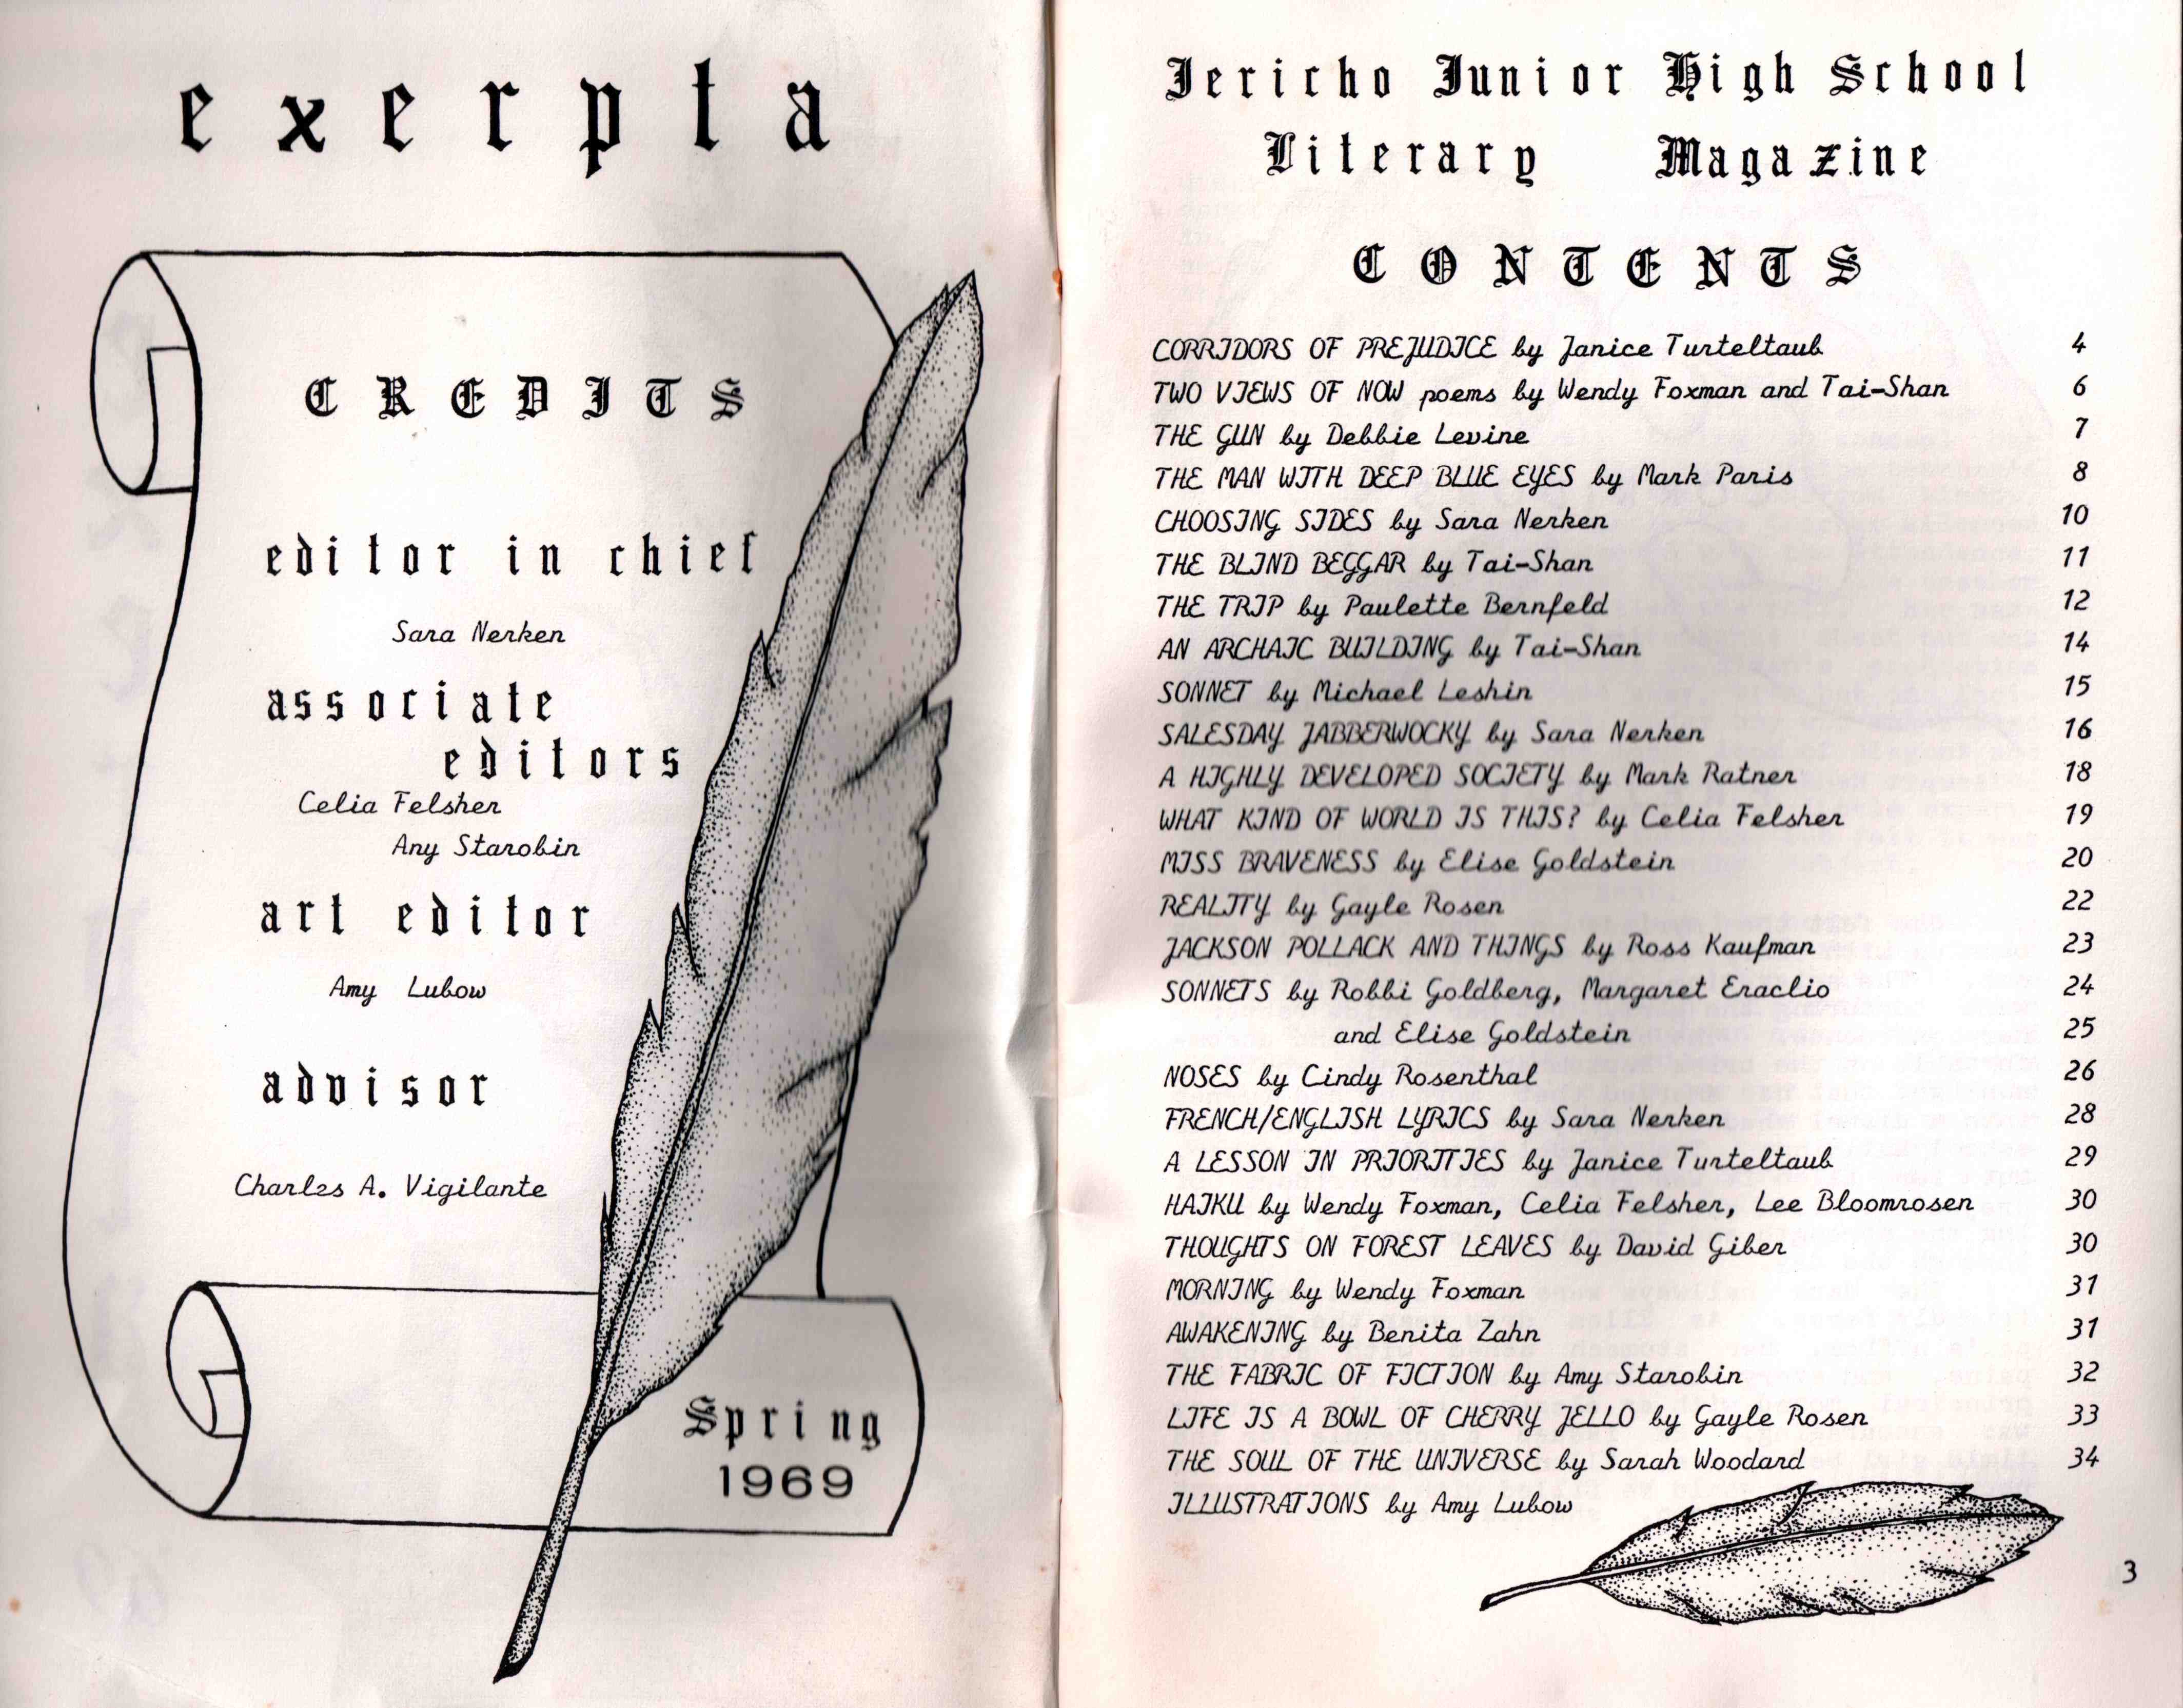 exerpta
CREDITS
editor in chief
Sara Nerken
associate
editors
Celia Felsher
Any Starobin
art editor
Amy Lubow
advisor
Charles A. Vigilante
Spring
1969
Jericho Junior High School
Literary Magazine
CONTENTS
CORRIDORS OF PREJUDICE by Janice Turteltaub 4
TWO VIEWS OF NOW poems by Wendy Foxman and Tai-Shan 6
THE GUN by Debbie Levine 7
THE MAN WITH DEEP BLUE EYES by Mark Paris 8
CHOOSING SIDES by Sara Nerken 10
THE BLIND BEGGAR by Tai-Shan 11
THE TRIP by Paulette Bernfeld 12
AN ARCHAIC BUILDING by Tai-Shan 14
SONNET by Michael Leshin 15
SALESDAY JABBERWOCKY by Sara Nerken 16
A HIGHLY DEVELOPED SOCIETY by Mark Ratner 18
WHAT KIND OF WORLD IS THIS? by Celia Felsher 19
MISS BRAVENESS by Elise Goldstein 20
REALITY by Gayle Rosen 22
JACKSON POLLACK AND THINGS by Ross Kaufman 23
SONNETS by Robbi Goldberg, Margaret Eraclio 24
and Elise Goldstein 25
NOSES by Cindy Rosenthal 26
FRENCH/ENGLISH LYRICS by Sara Nerken 28
A LESSON IN PRIORITIES by Janice Turteltaub 29
HAIKU by Wendy Foxman, Celia Felsher, Lee Bloomrosen 30
THOUGHTS ON FOREST LEAVES by David Giber 30
MORNING by Wendy Foxman 31
AWAKENING by Benita Zahn 31
THE FABRIC OF FICTION by Amy Starobin 32
LIFE IS A BOWL OF CHERRY JELLO by Gayle Rosen 33
THE SOUL OF THE UNIVERSE by Sarah Woodard 34
ILLUSTRATIONS by Amy Lubow
3